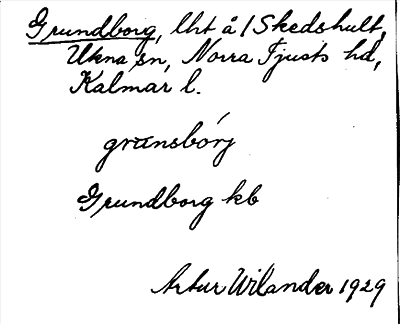 Grundborg, lht å /Skedshult,
Ukna sn, Norra Tjusts hd,
Kalmar l.
grunsbórj
Grundborg kb
Artur Wilander 1929